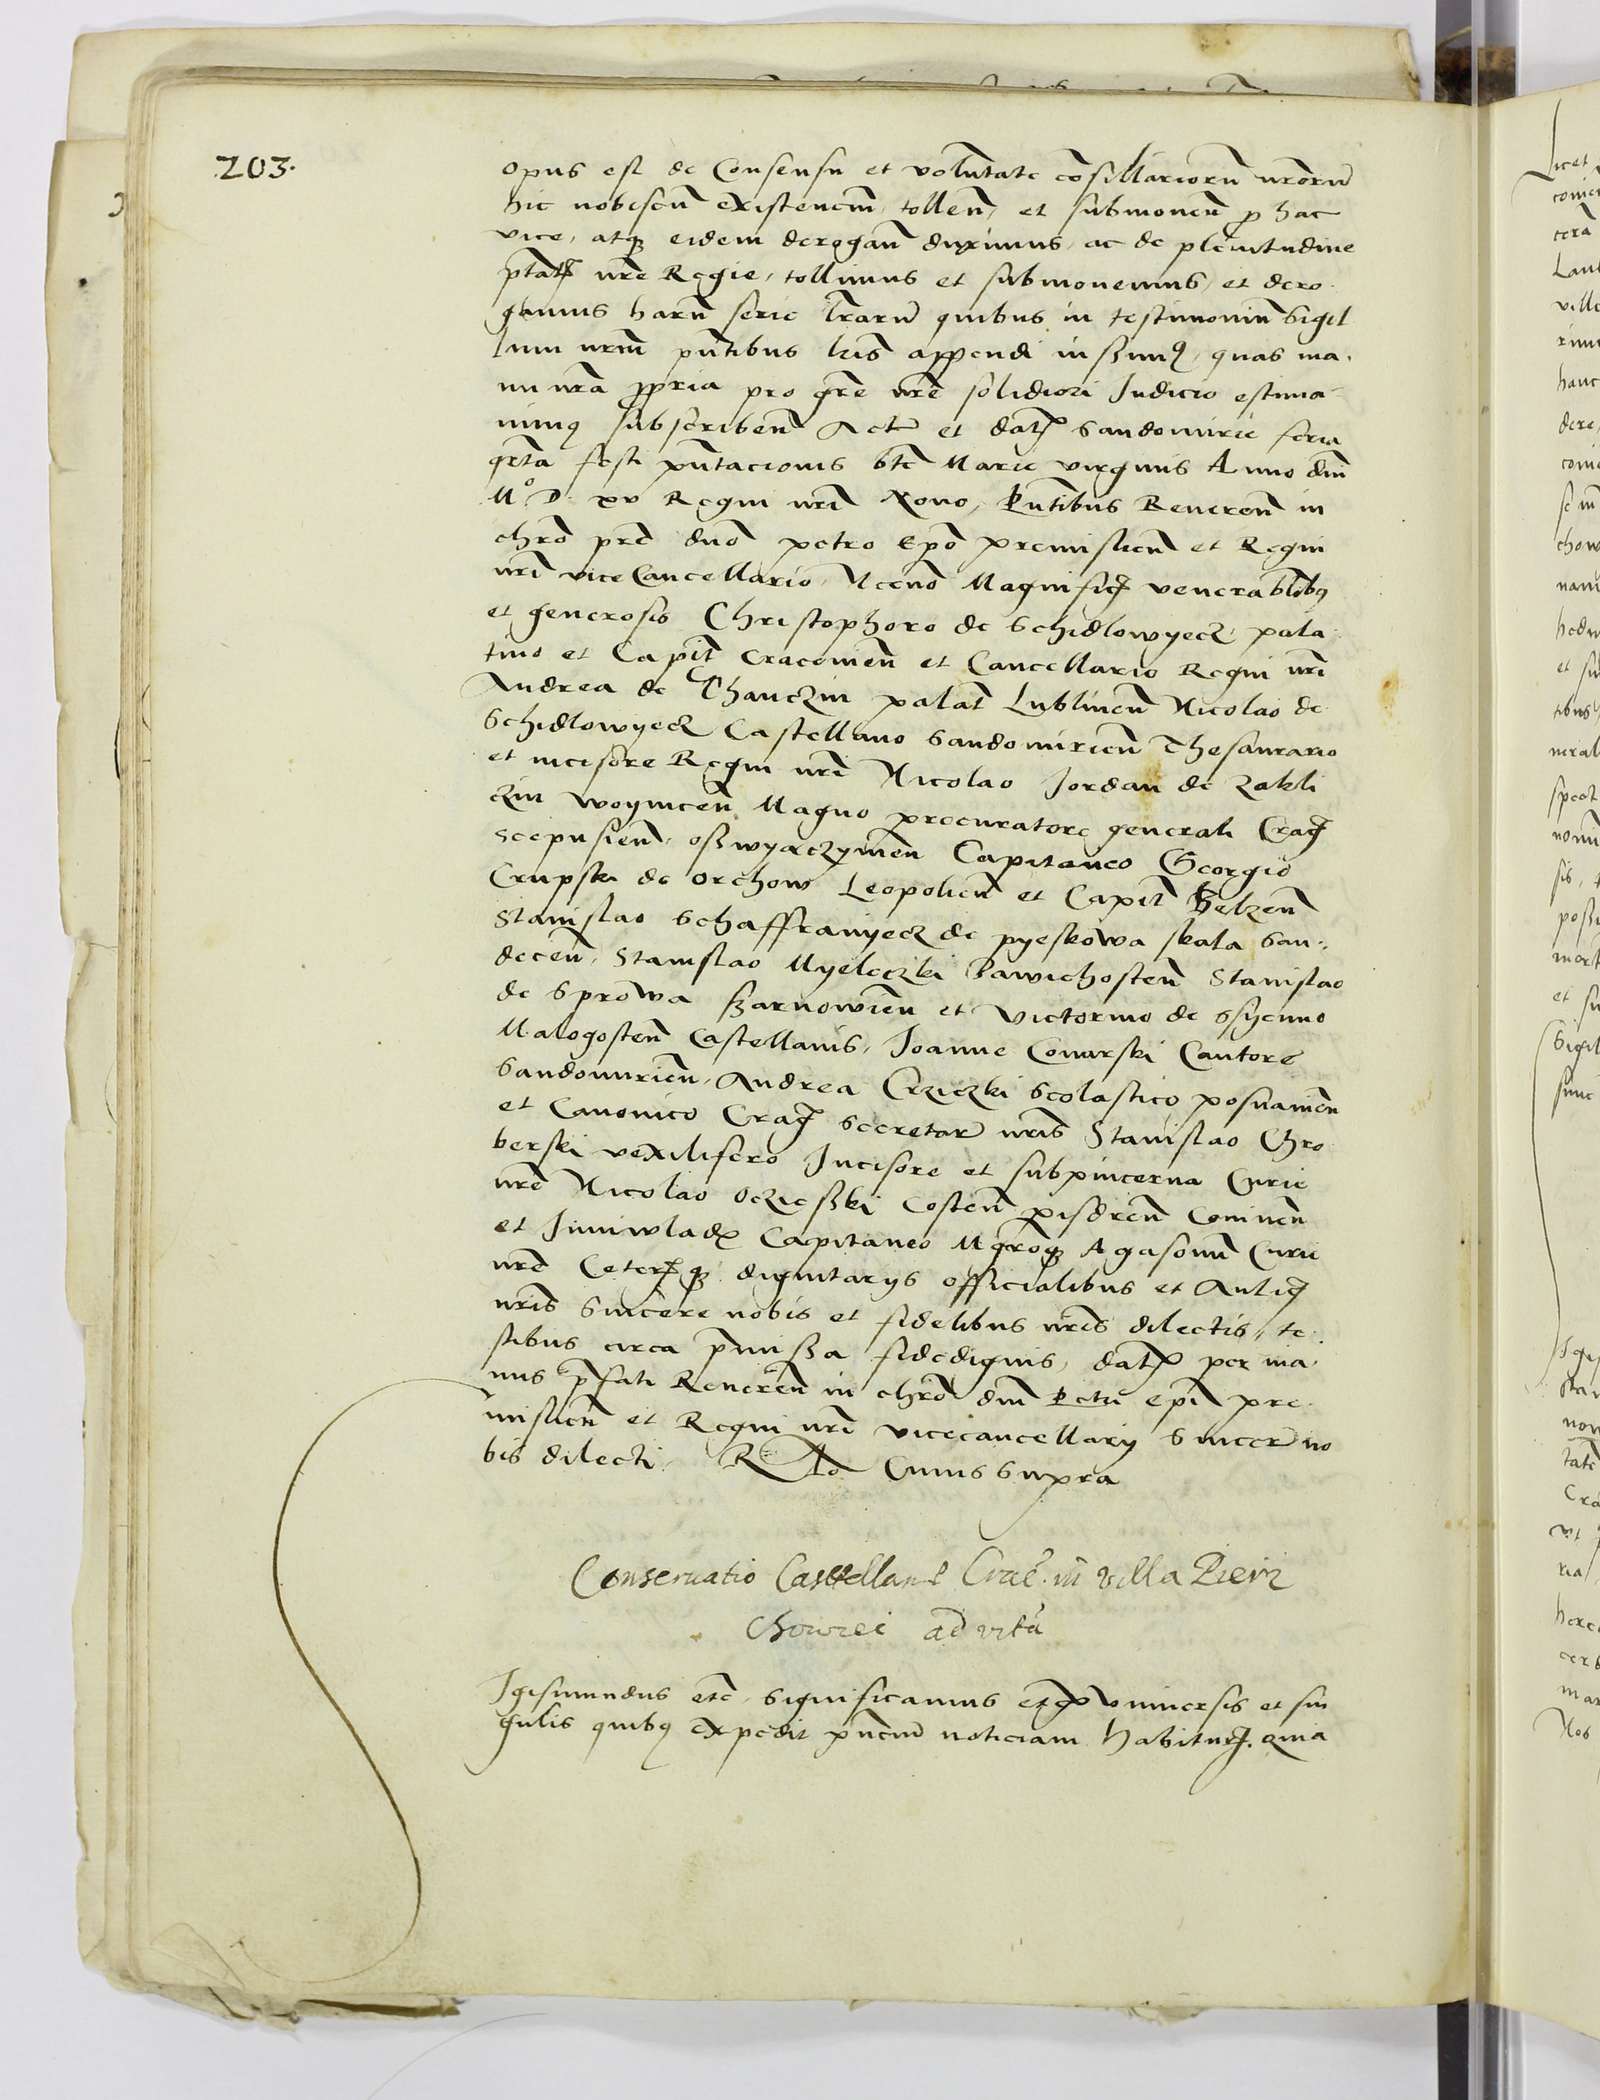 203.
opus est de Consensu et voluntate cōsiliariorū nrorū
hic nobiscū existenciū, tollen̄, et submouen̄ p hac
vice, atq3 eidem derogan̄ duximus, ac de plenitudine
ptatis nrē Regie, tollimus et submouemus, et dero
gamus harū serie lrārū quibus in testimoniū Sigil
lum nrm̄ pn̄tibus lrīs appendi iussimus, quas ma
nu nrā ppria pro grē nrē solidiori Iudicio estima
uimus subscriben̄ Actū et datū Sandomirie feria
qrta festi pn̄tacionis btē Marie virginis Anno dnī
Mo D xv Regni nrī Nono, Pn̄tibus Reueren̄ in
chrō prē dnō petro Epō premislien̄ et Regni
nrī viceCancellario, Necnō Magnificis venerabilibus
et generosis Christophoro de Schidlowyecz pala
tino et Capit̄ cracouien̄ et Cancellario Regni nrī
Andrea de Thanczin palat̄ Lublinen̄ Nicolao de
Schidlowyecz Castellano Sandomirien̄ Thesaurario
et incisore Regni nrī Nicolao Jordan de Zakli
czin woynicen̄ Magno procuratore generali Crac̄
scepusien̄, oswyanczymen̄ Capitaneo Georgio
Crupski de Orchow Leopolien̄ et Capit̄ Belzen̄
Stanislao Schaffranyecz de pyeskowa skala San
decen̄, Stanislao Myeleczki Zawichosten̄ Stanislao
de Sprowa Szarnowien̄ et Victorino de Syenno
Malogosten̄ Castellanis, Joanne Conarski Cantore
Sandomirien̄, Andrea Crziczki Scolastico posnanien̄
et Canonico Crac̄ Secretar̄ nrīs Stanislao Chro
berski vexilifero Incisore et subpincerna Curie
nrē Nicolao Oczieski Costen̄ pisdren̄ Coninen̄
et Iuniwladz Capitaneo Mgroq3 Agasonū Curie
nrē Ceterisq3 dignitarijs officialibus et Aulicis
nrīs Sincere nobis et fidelibus nrīs dilectis, te
stibus circa p̄missa fidedignis, datū per ma
nus p̄fati Reueren̄ in chrō dnī Petri epī pre
mislien̄ et Regni nrī vicecancellarij Sincere no
bis dilecti. Rlō Cuius Supra
Conseruatio Castellani Crac. in villa Pierz
chowiec ad vitā
Igismundus etc̄, Significamus vniuersis et sin
gulis quibus expedit pn̄cium noticiam habituris. quia